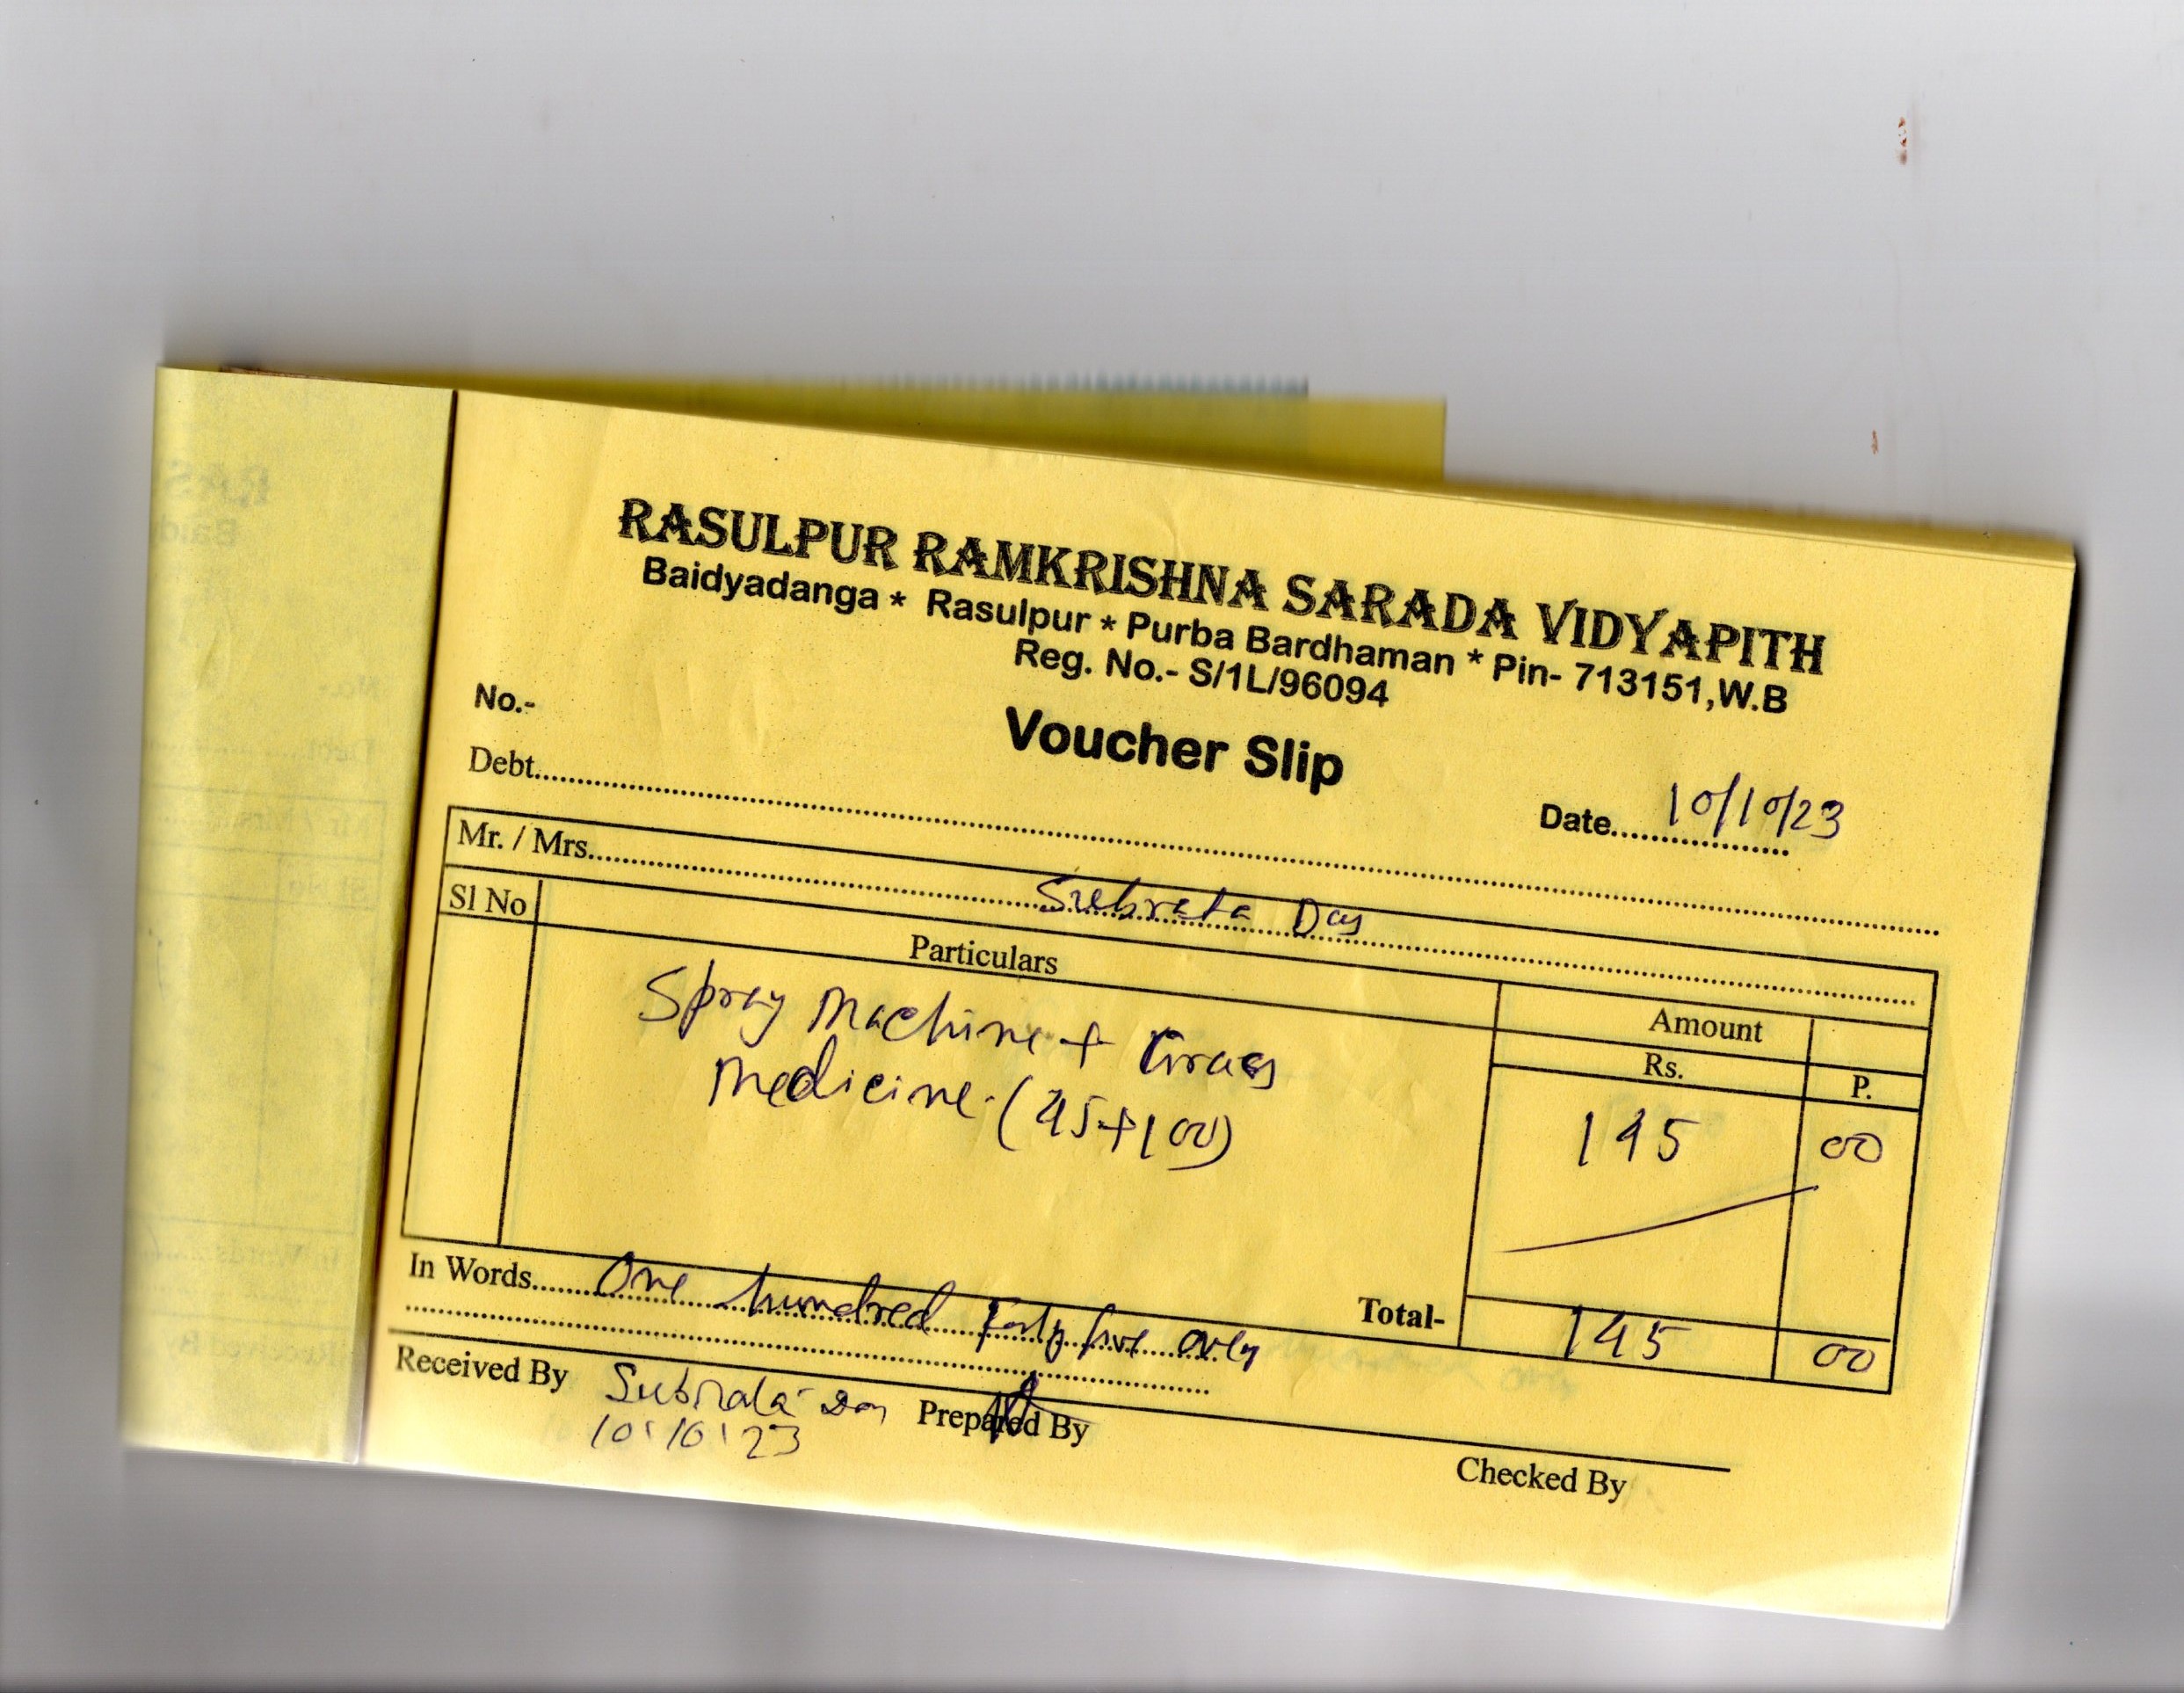 RASULPUR RAMKRISHNA SARADA VIDYAPITH
Baidyadanga * Rasulpur * Purba Bardhaman * Pin- 713151,W.B
Reg. No.- S/1L/96094
No.-
Voucher Slip
Date.......10/10/23
Debt.......
Mr. / Mrs.......Subrata Das
Sl No Particulars Amount
Rs. P.
Spray Machine + Grass 145 00
Medicine. (45+100)
In Words......One hundred Forty five only
Total- 145 00
Received By Subrata Das Prepared By Checked By
10/10/23